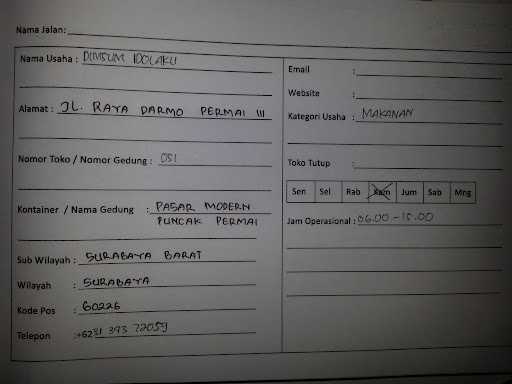 Nama Jalan:
Nama Usaha : DIMSUM IDOLAKU
Alamat : JL. RAYA DARMO PERMAI III
Nomor Toko / Nomor Gedung : 051
Kontainer / Nama Gedung : PASAR MODERN
PUNCAK PERMAI
Sub Wilayah : SURABAYA BARAT
Wilayah : SURABAYA
Kode Pos : 60226
Telepon :+6231 393 72059
Email :
Website :
Kategori Usaha : MAKANAN
Toko Tutup :
Sen Sel Rab Kam Jum Sab Mng
Jam Operasional : 06.00 - 15.00